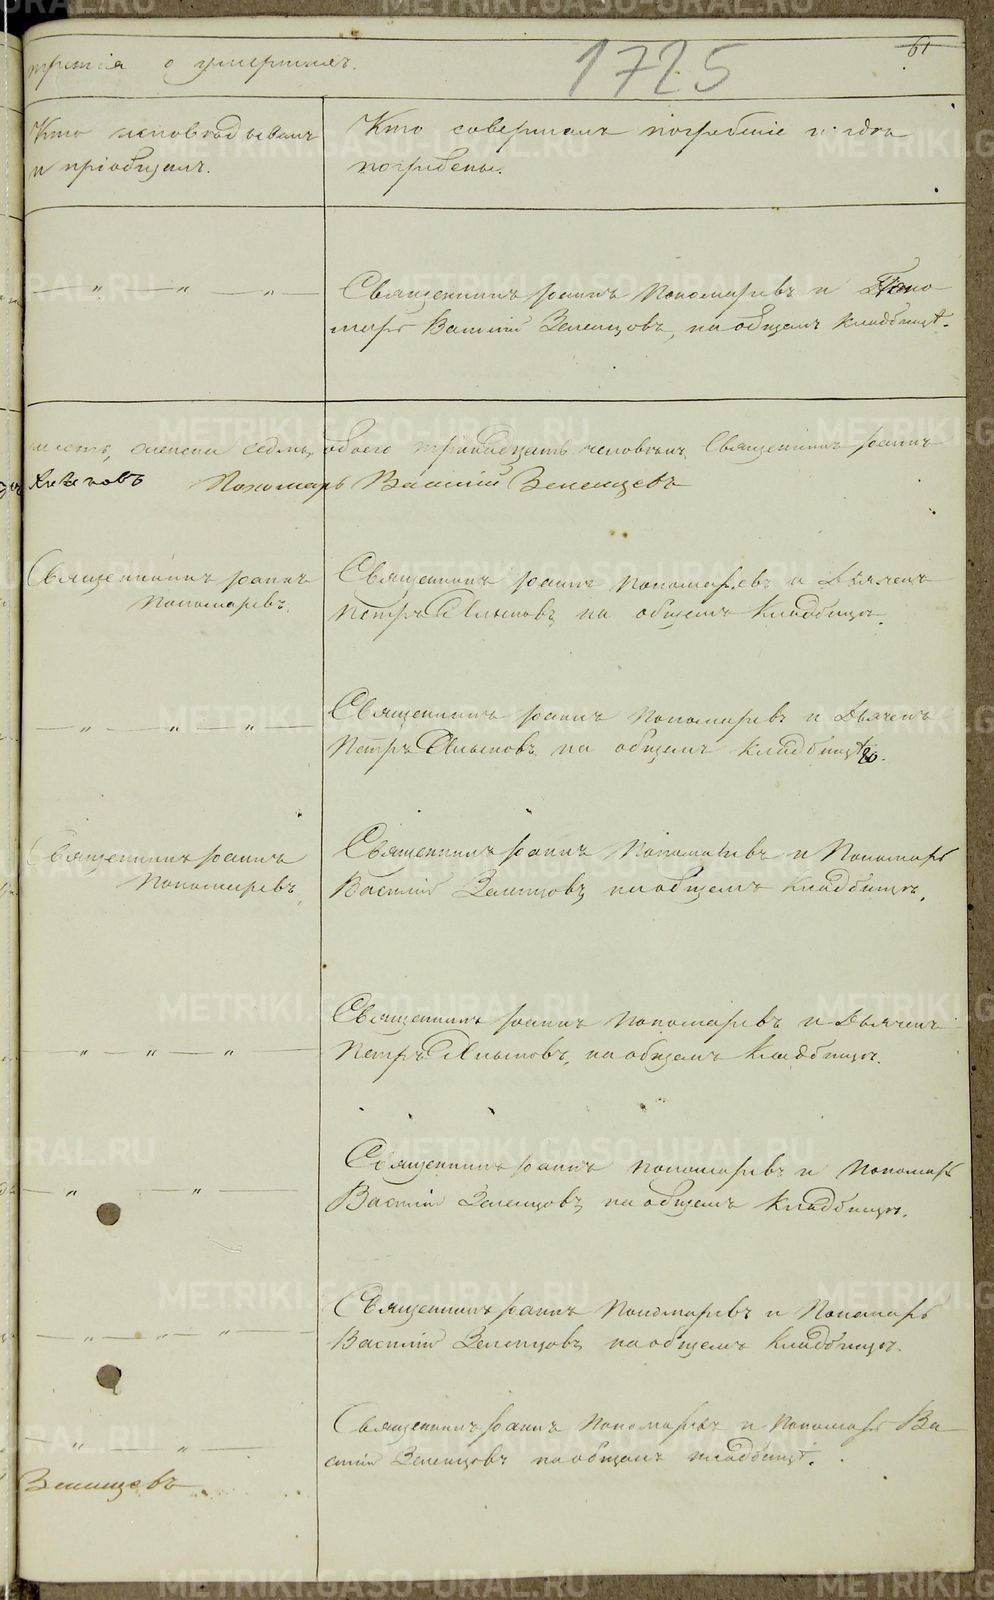 третія о умершихъ.
1725
61
Кто исповѣдывалъ
и пріобщалъ.
Кто совершалъ погребеніе и гдѣ
погребены.
Священникъ Іоаннъ Пономаревъ и Поно-
марь Василій Зеленцовъ, на общемъ кладбищѣ.
шесть, женска седмь, обоего тринадцать человѣкъ, Священникъ Іоаннъ
Пономарь Василій Зеленцевъ
Священникъ Іоаннъ
Пономаревъ.
Священникъ Іоаннъ Пономаревъ и Дьячекъ
Петръ на общемъ кладбищѣ.
Священникъ Іоаннъ Пономаревъ и Дьячекъ
Петръ на общемъ кладбищѣ.
Священникъ Іоаннъ
Пономаревъ,
Священникъ Іоаннъ Пономаревъ и Пономарь
Василій Зеленцовъ, на общемъ кладбищѣ.
Священникъ Іоаннъ Пономаревъ и Дьячекъ
Петръ на общемъ кладбищѣ.
Священникъ Іоаннъ Пономаревъ и Пономарь
Василій Зеленцовъ, на общемъ кладбищѣ.
Священникъ Іоаннъ Пономаревъ и Пономарь
Василій Зеленцовъ, на общемъ кладбищѣ.
Священникъ Іоаннъ Пономаревъ и Пономарь Ва-
силій Зеленцовъ на общемъ кладбищѣ.
Зеленцевъ.
METRIKI.GASO-URAL.RU